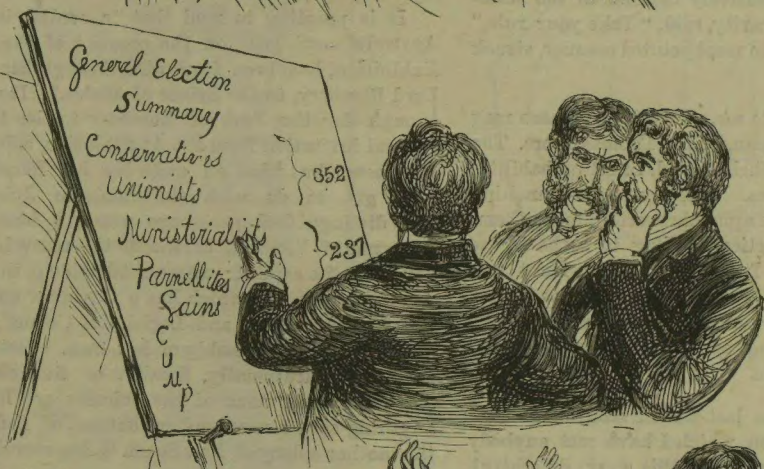 General Election
Summary
Conservatives
Unionists
352
Ministerialists
Parnellites
237
Gains
C
U
M
P